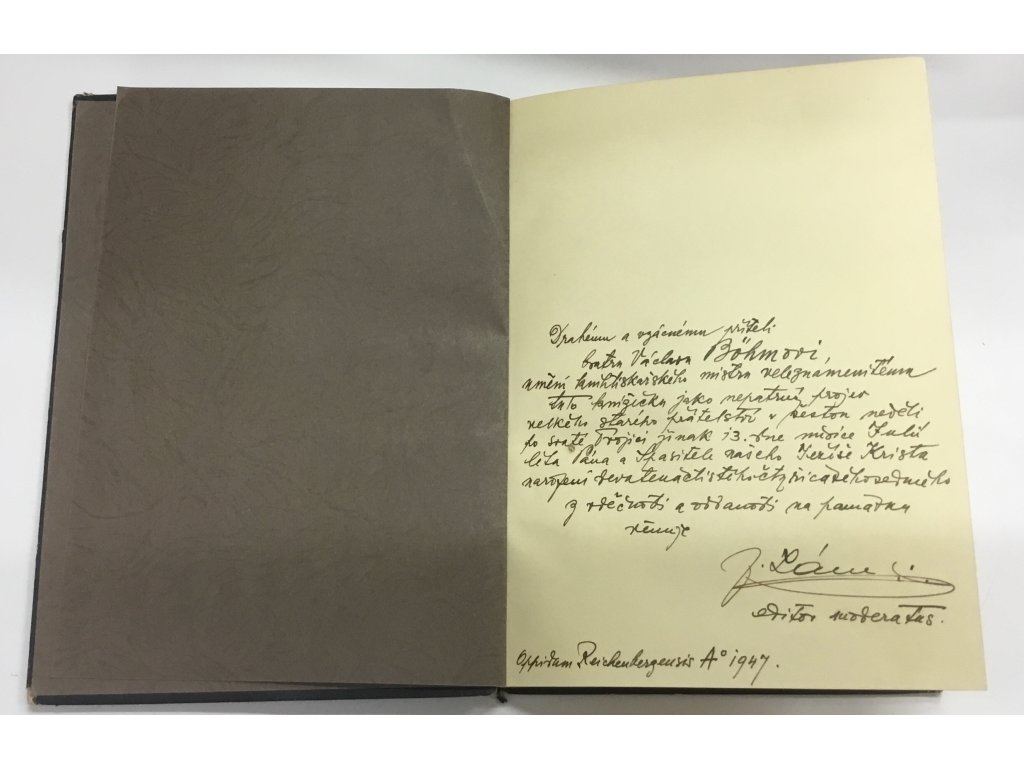 Drahému a vzácnému příteli
bratru Václavu Böhmovi,
umění knihtiskařského mistru veleznamenitému
tuto knížečku jako nepatrný projev
velkého starého přátelství v šestou neděli
po svaté Trojici jinak 13. dne měsíce Julii
léta Pána a Spasitele našeho Ježíše Krista
narození devatenáctistéhočtyřicátéhosedmého
z vděčnosti a oddanosti na památku
věnuje
editor moderatus.
Oppidum Reichenbergensis Aº 1947.